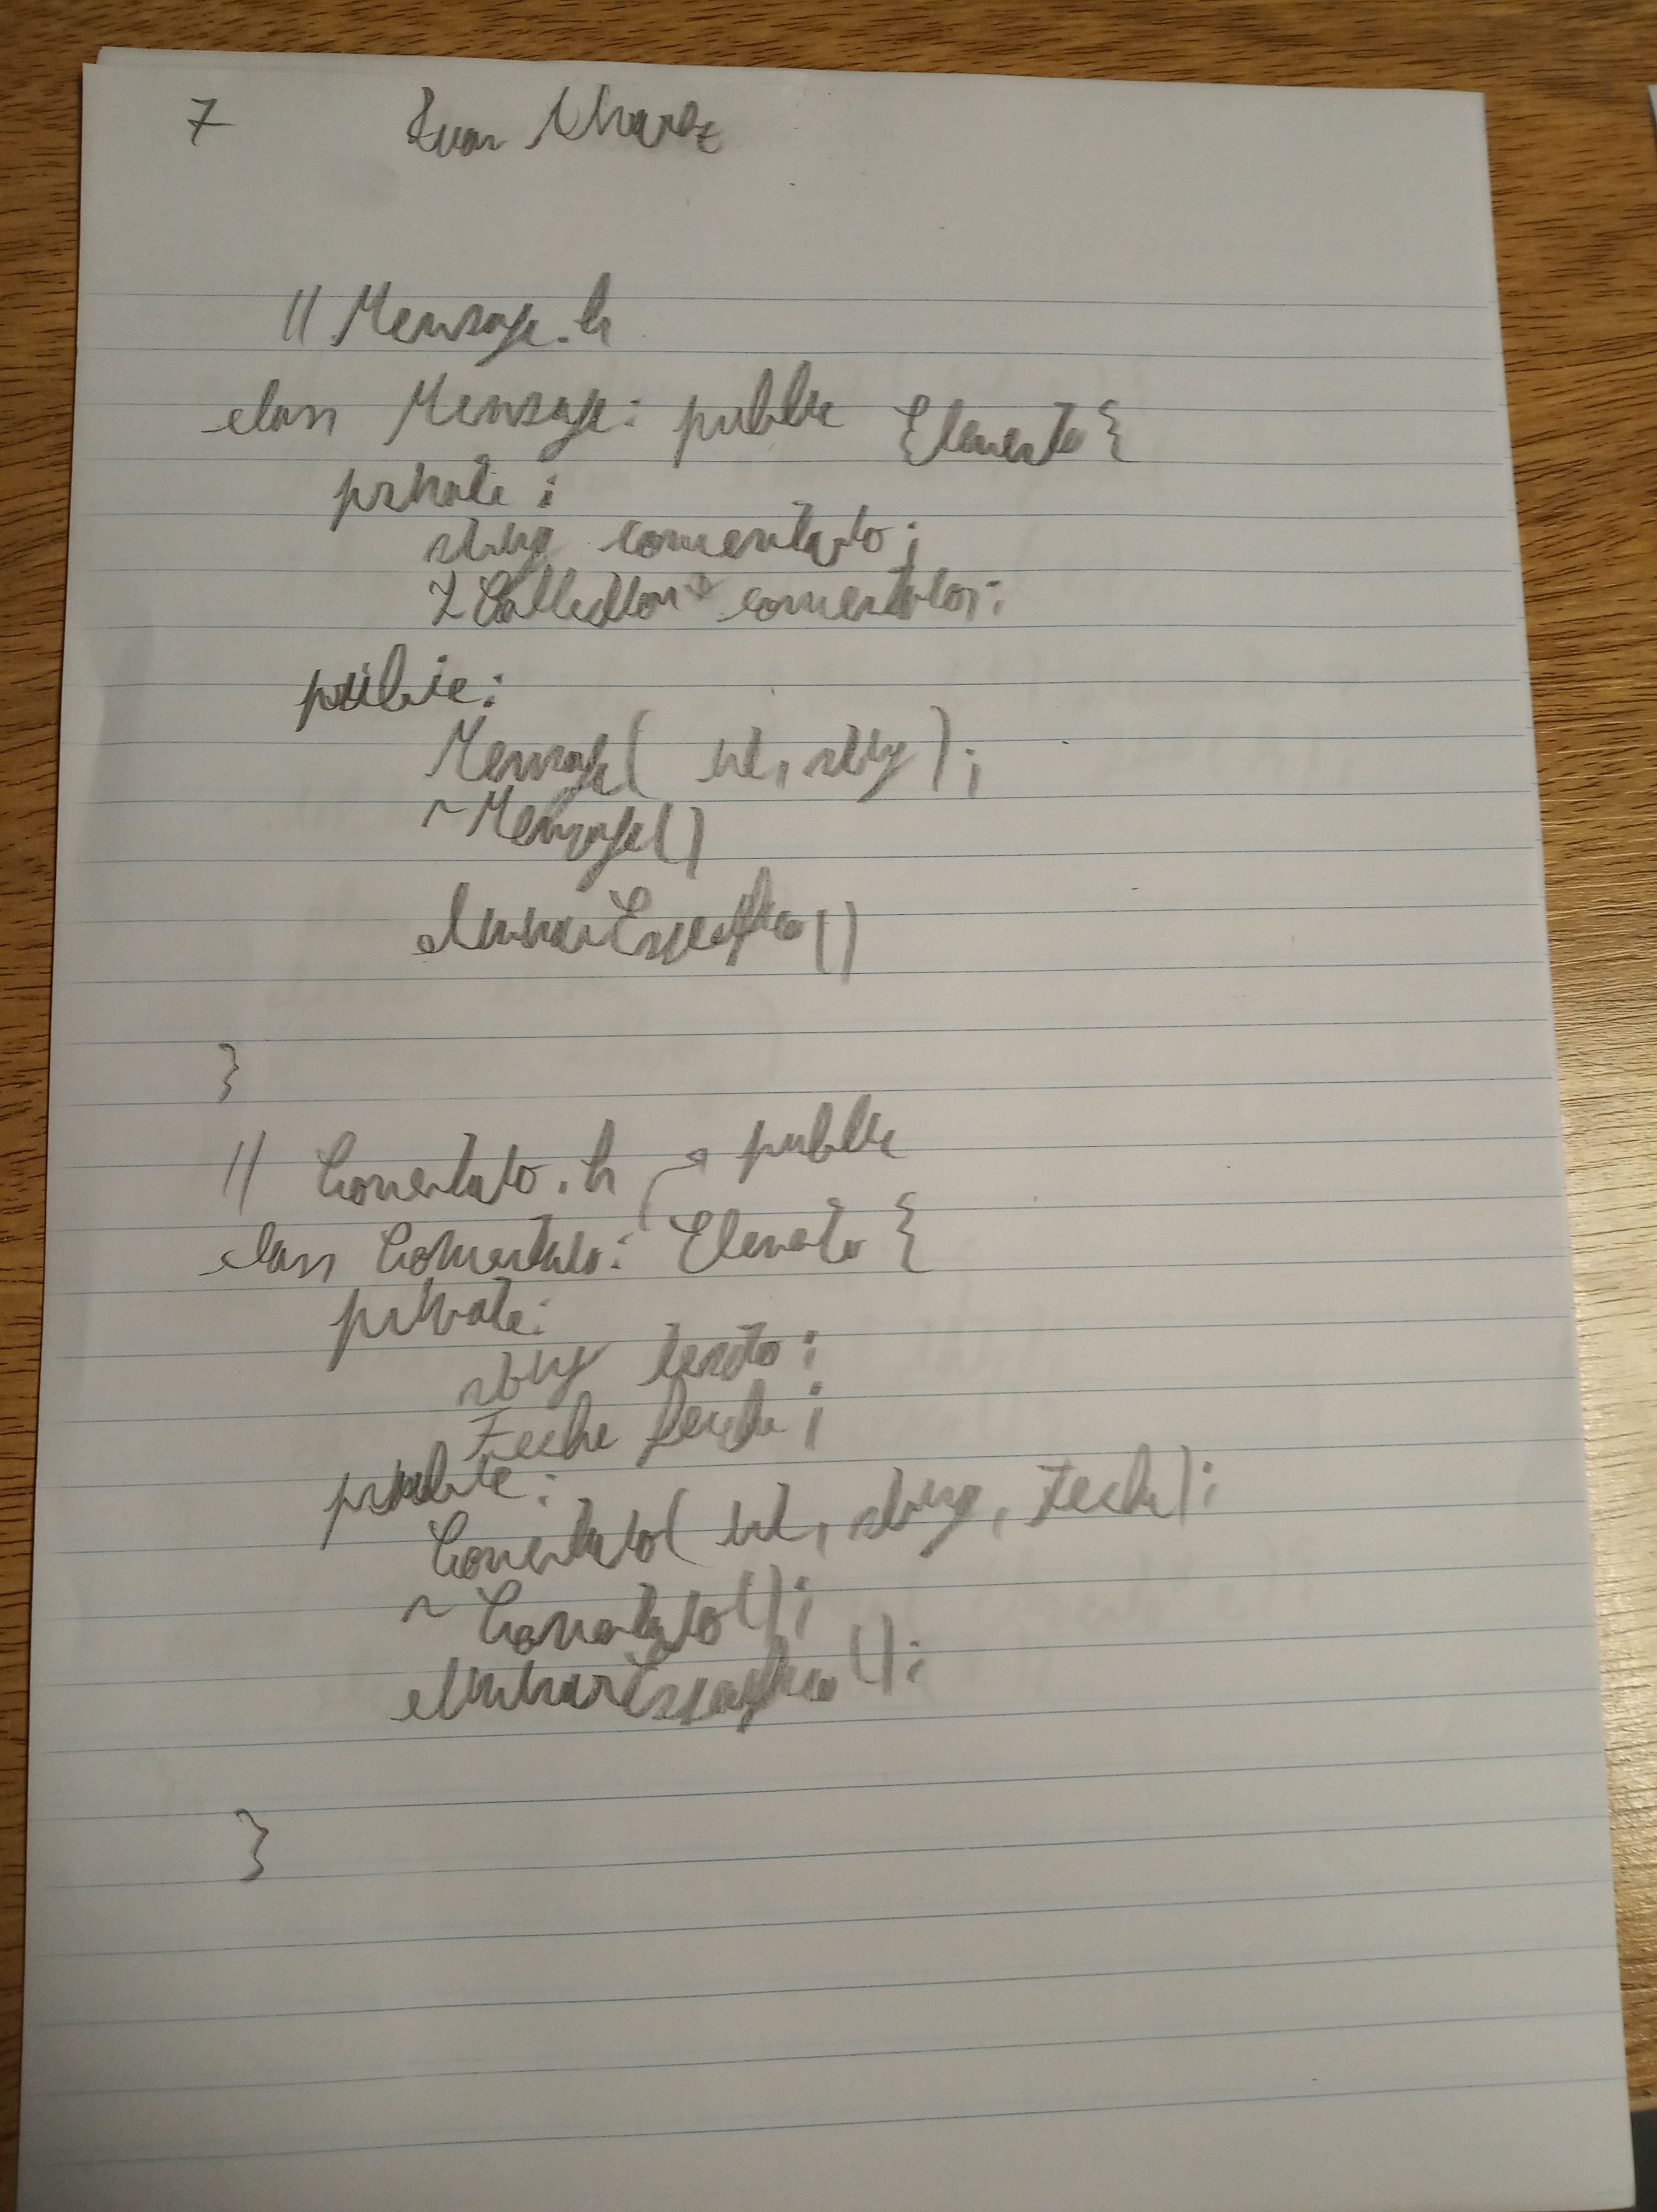 7 Juan Alvarez
// Mensaje.h
class Mensaje: public Elemento {
private:
string comentario;
ICollection* comentarios;
public:
Mensaje( int, string );
~Mensaje()
eliminarEspecifico()
}
// Comentario.h public
class Comentario: Elemento {
private:
string texto;
Fecha fecha;
public:
Comentario( int, string, Fecha);
~ Comentario();
eliminarEspecifico();
}